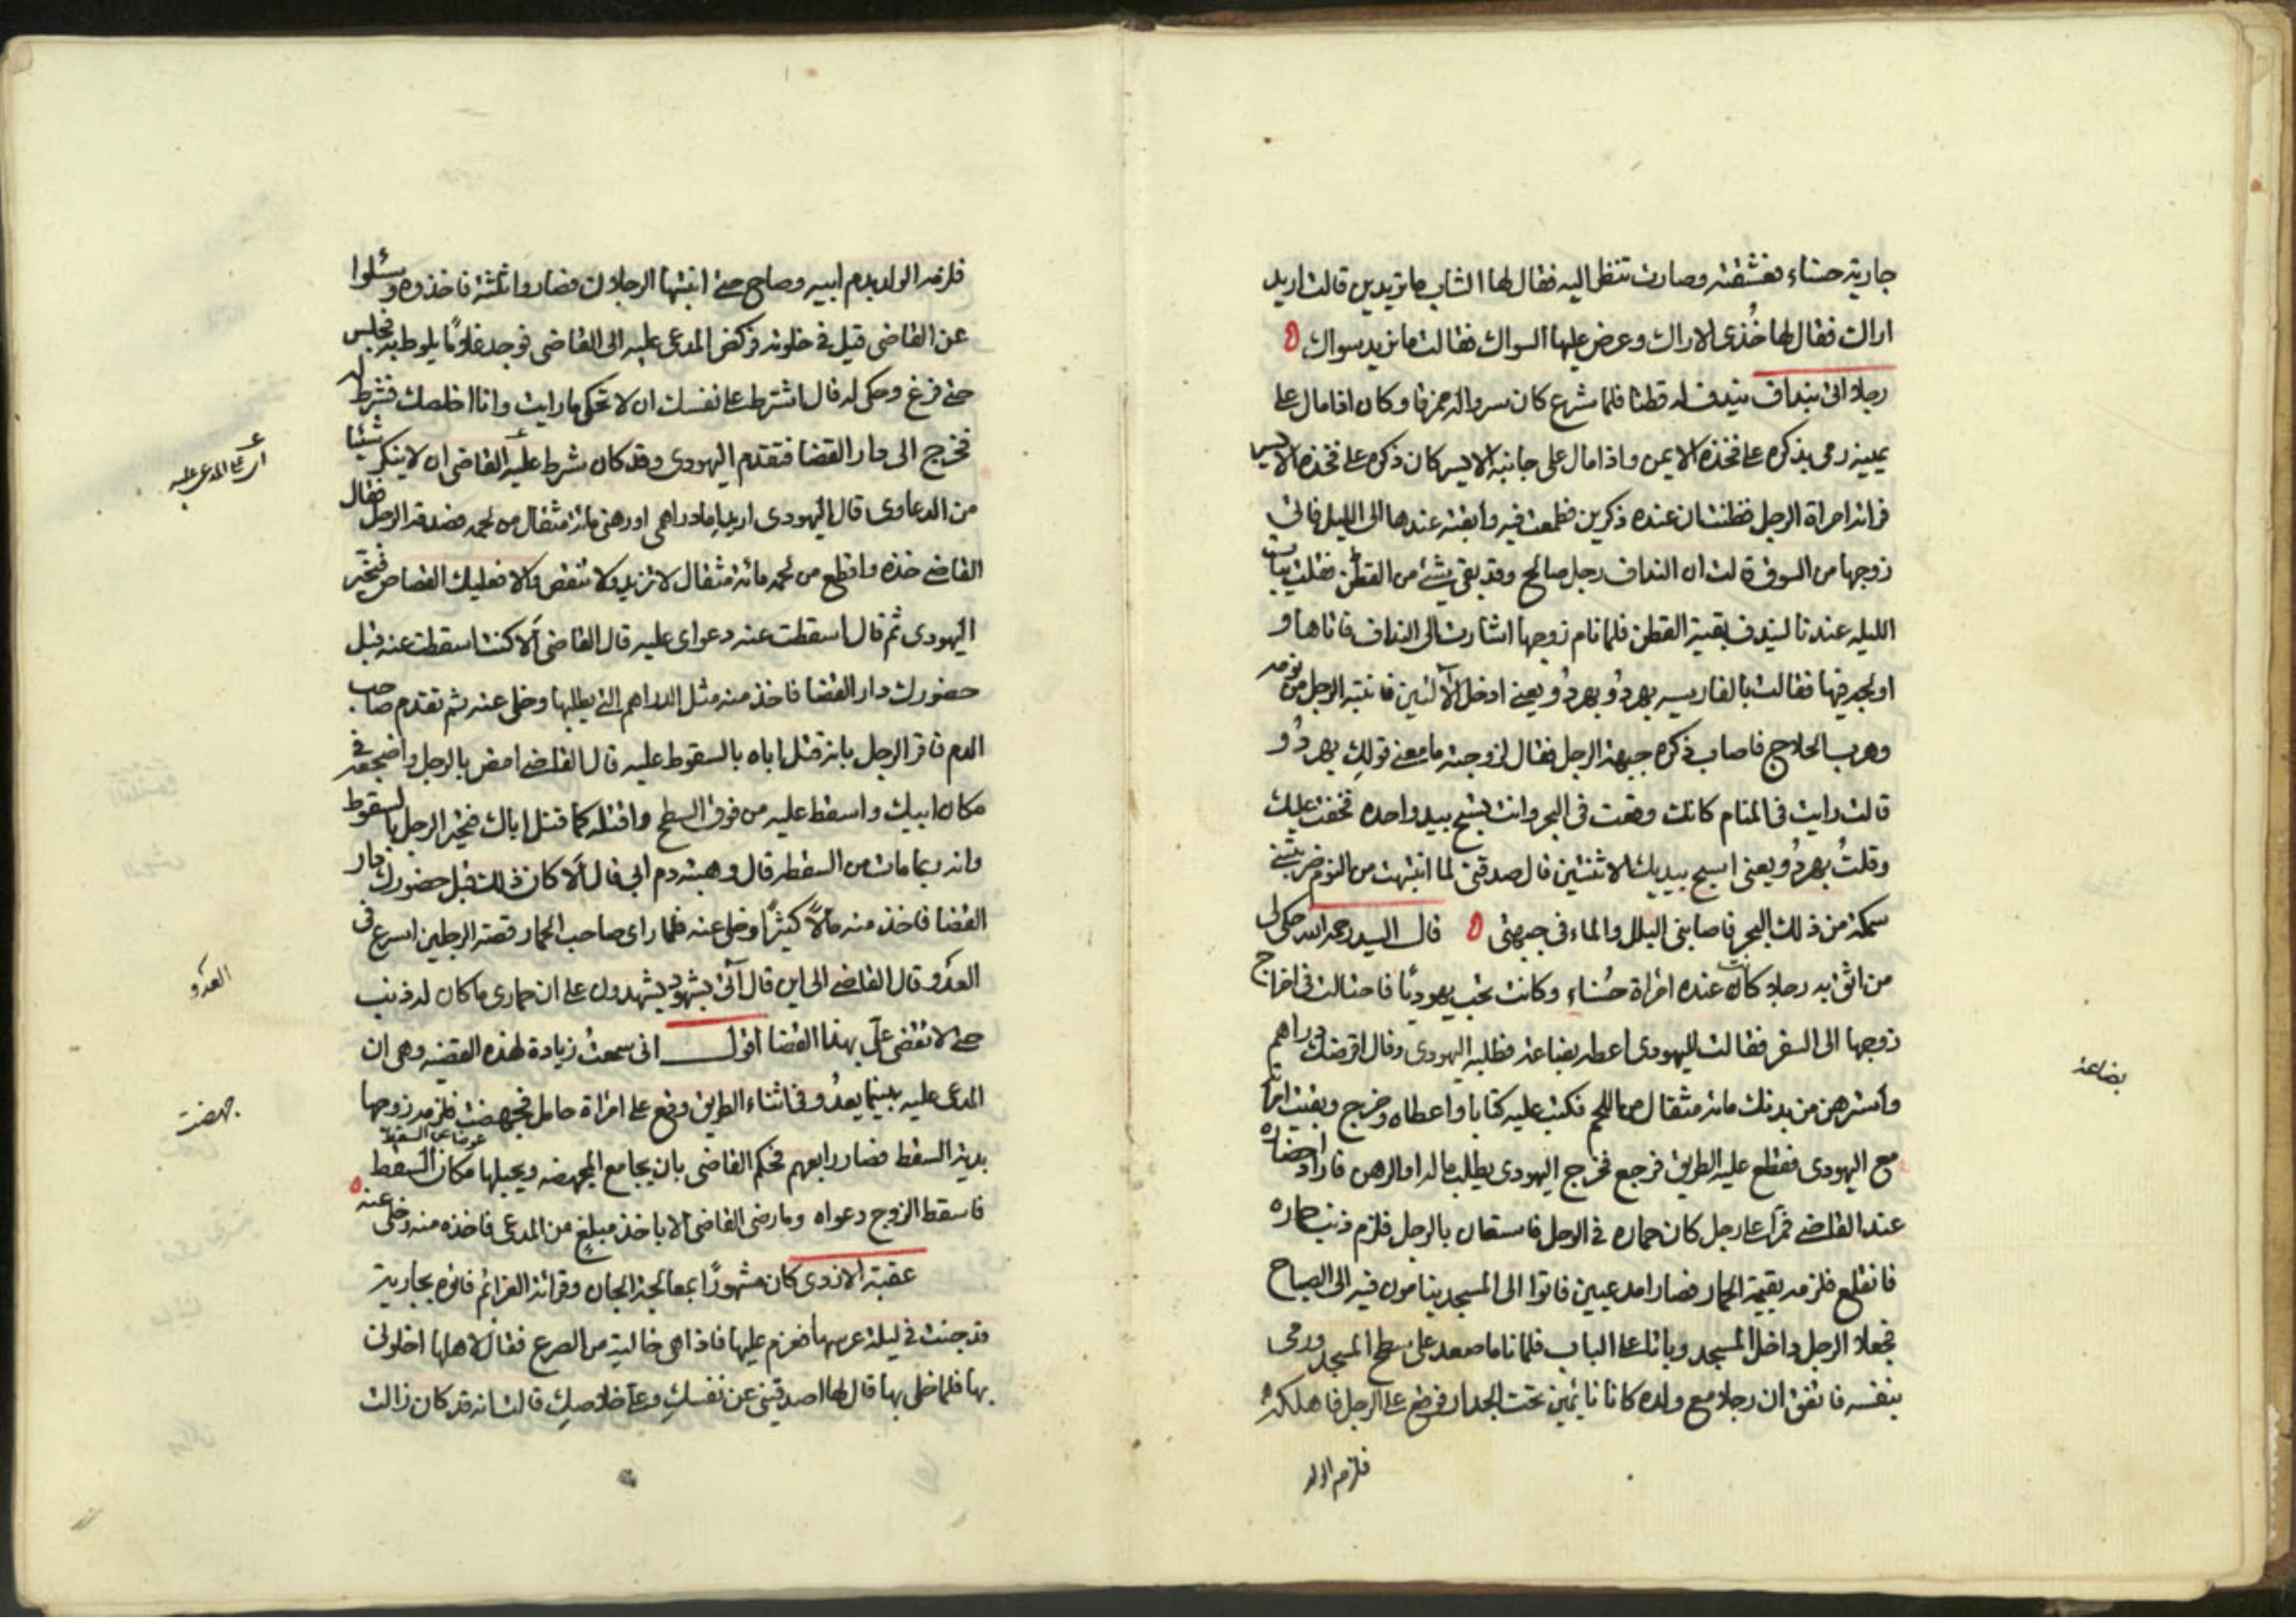 جارية حسناء فعشقته وصارت تنظر اليه فقال لها الشاب ما تريدين قالت اريد
اراك فقال لها خُذى الاراك وعرض عليها السواك فقالت ما نريد سواك
رجلا اتى بنداف يندف له قطنا فلما شرع كان سرواله خرقا وكان اذا مال على
يمينه رمى بذكره على فخذه الايمن واذا مال على جانبه الايسر كان ذكره على فخذه الايسر
فراته امراة الرجل فظنت ان عنده ذكرين فطمعت فيه وابقته عندها الى الليل فاتى
زوجها من السوق قالت ان النداف رجل صالح وقد بقى شئ من القطن فقلت يبات
الليله عندنا ليندف بقية القطن فلما نام زوجها اشارت الى النداف فاتاها و
اولجه فيها فقالت بالفارسيه بهردُو بهردُو يعنى ادخل الآلتين فانتبه الرجل من نومه
وهرب الحلاج فاصاب ذكره جبهة الرجل فقال لزوجته ما معنى قولكِ بهردُو
قالت رايت فى المنام كانك وقعت فى البحر وانت تسبح بيد واحده فخفت عليك
وقلتُ بهردُو يعنى اسبح بيديك الاثنتين قال صدقتى لما انتبهت من النوم ضربتنى
سمكة من ذلك البحر فاصابنى البلل والماء فى جبهتى قال السيد رحمه الله حكى لى
من اثق به رجلا كانت عنده امراة حُسناء وكانت تحب يهوديًا فاحتالت فى اخراج
زوجها الى السفر فقالت لليهودى اعطه بضاعة فطلبه اليهودى وقال اقرضك دراهم
واسترهن من بدنك مائة مثقال من اللحم فكتب عليه كتابا واعطاه وخرج وبقيت امراته
مع اليهودى فقطع عليه الطريق فرجع فخرج اليهودى يطلب ماله او الرهن فاراد احضاره
عند القاضى فمرّا على رجل كان حماره فى الوحل فاستعان بالرجل فلزم ذنب حماره
فانقلع فلزمه بقيمة الحمار فصارا مدعيين فاتوا الى المسجد ينامون فيه الى الصباح
فجعلا الرجل داخل المسجد وباتا على الباب فلما ناما صعد على سطح المسجد ورمى
بنفسه فاتفق ان رجلا مع ولده كانا نايمين تحت الجدار فوقع على الرجل فاهلكه
فلزمه الولد
بضاعة
فلزمه الولد بدم ابيه وصاح حتى انتبها الرجلان فصاروا ثلثة فاخذوه وسئلوا
عن القاضى قيل فى خلوته فركض المدعى عليه الى القاضى فوجد غلامًا يلوط به فجلس
حتى فرغ وحكى له قال اشترط على نفسك ان لا تحكى ما رايت وانا اخلصك فشرط له
فخرج الى دار القضا فتقدم اليهودى وقد كان شرط عليه القاضى ان لا ينكر شيئا
من الدعاوى قال اليهودى اريد اما دراهمى او رهنى مائة مثقال من لحمه فصدقه الرجل فقال
القاضى خذه واقطع من لحمه مائة مثقال لا تزيد ولا تنقص والا فعليك القصاص فتحيّر
اليهودى ثم قال اسقطت عنه دعواى عليه قال القاضى اَلا كنت اسقطت عنه قبل
حضورك دار القضا فاخذ منه مثل الدراهم التى يطلبها وخلى عنه ثم تقدم صاحب
الدم فاقر الرجل بانه قتل اباه بالسقوط عليه قال القاضى امض بالرجل واضجعه فى
مكان ابيك واسقط عليه من فوق السطح واقتله كما قتل اباك فتحير الرجل بالسقوط
وانه ربما مات من السقطه قال وهبته دم ابى قال اَلا كان ذلك قبل حضورك دار
القضا فاخذ منه مالًا كثيرًا وخلى عنه فلما راى صاحب الحمار قصة الرجلين اسرع فى
العدْو قال القاضى الى اين قال آتى بشهود يشهدون على ان حمارى ما كان له ذنب
حتى لا تقضى علَىّ بهذا القضا اقول انى سمعتُ زيادة لهذه القضيه وهى ان
المدعى عليه بينما يعدُو فى اثناء الطريق وقع على امراة حامل فجهضت فلزمه زوجها
عوضا عن السقط
بدية السقط فصار رابعهم فحكم القاضى بان يجامع المجهضه ويحبلها مكان السقط
فاسقط الزوج دعواه وما رضى القاضى الا باخذ مبلغٍ من المدعى فاخذه منه وخلى عنه
عقبة الازدى كان مشهورًا بمعالجة الجان وقرائة العزائم فاتوه بجارية
قد جنت فى ليلة عرسها فعزم عليها فاذا هى خالية من الصرع فقال لاهلها اخلونى
بها فلما خلى بها قال لها اصدقينى عن نفسكِ وعلى خلاصكِ قالت انه قد كان زالت
اى على المدعى عليه
العدْو
جهضت